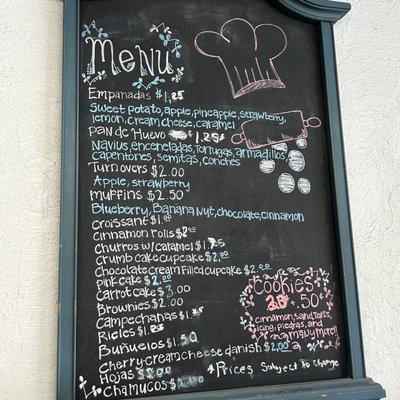 Menu
Empanadas $1.25
Sweet potato, apple, pineapple, strawberry,
lemon, cream cheese, caramel
Pan de Huevo $1.25
Navius, enceneladas, Tortugas, armadillos
Capentones, semitas, conches
Turn overs $2.00
Apple, strawberry
muffins $2.50
Blueberry, Banana Nut, chocolate, cinnamon
croissant $1.00
cinnamon rolls $2.00
Churros w/caramel $1.75
Crumb cake cupcake $2.00
Chocolate cream filled cupcake $2.00
Pink cake $2.00
Carrot cake $3.00
Brownies $2.00
Campechanas $1.25
Rieles $1.25
Buñuelos $1.50
Cherry-cream cheese danish $2.00
Hojas
CHamucos
*Prices Subject To Change
cookies
.50¢
cinnamon, sand, tarts,
icing, piedras, and
many more!!